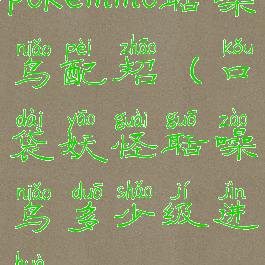 pokemmo聒噪
niǎo pèi zhāo kǒu
鸟配招（口
dài yāo guài guō zào
袋妖怪聒噪
niǎo duō shǎo jí jìn
鸟多少级进
huà